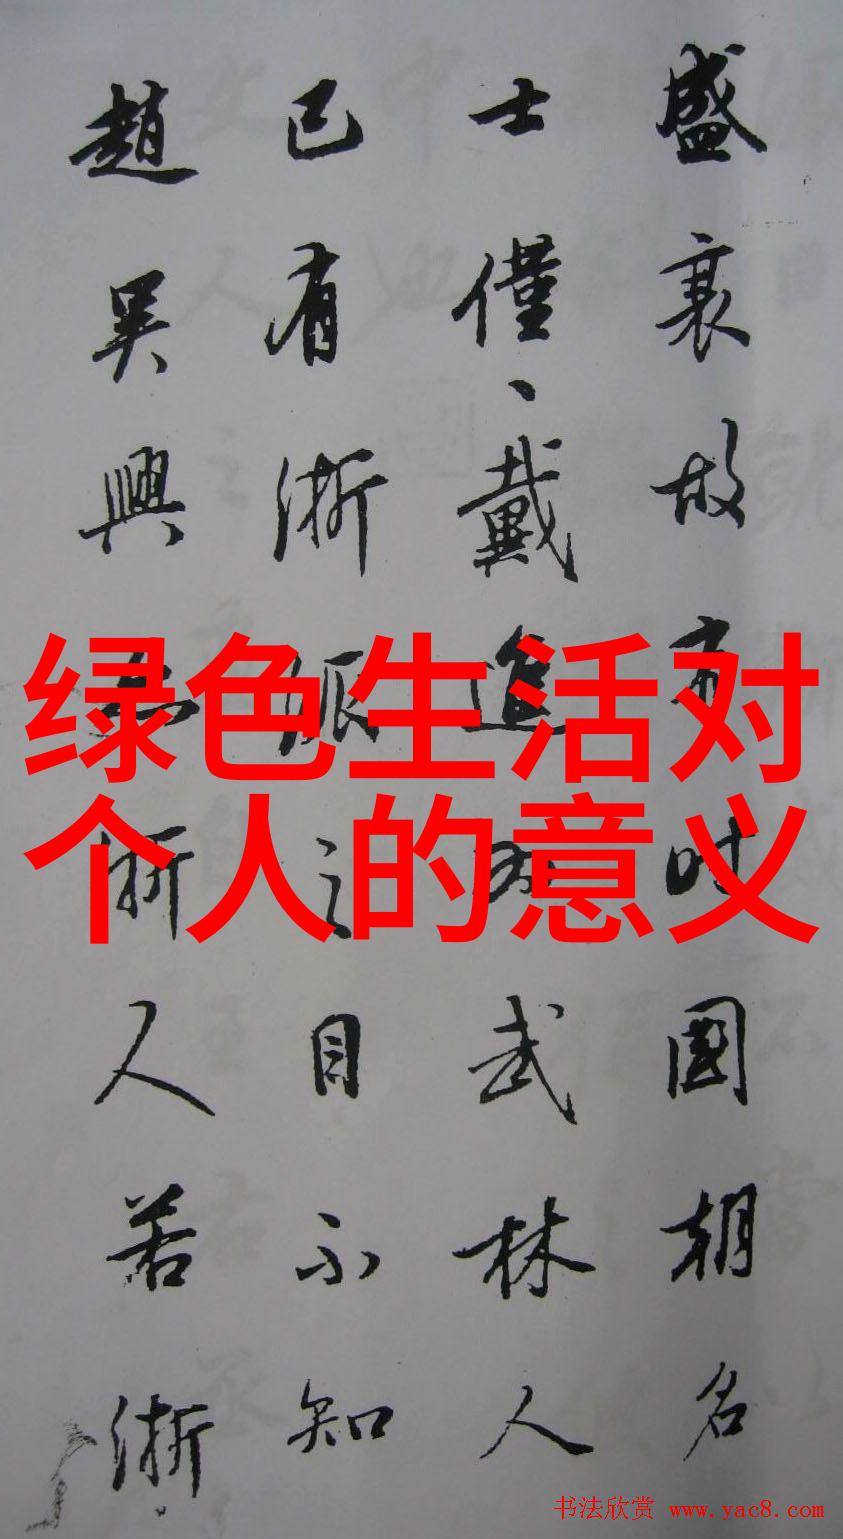 盛衰故有时國朝名
士僅、戴進为武林人
已有浙派之目不知
趙吴興亦浙人若浙
绿色生活对
个人的意义
书法欣赏 www.yac8.com